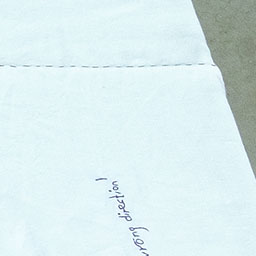 wrong direction!